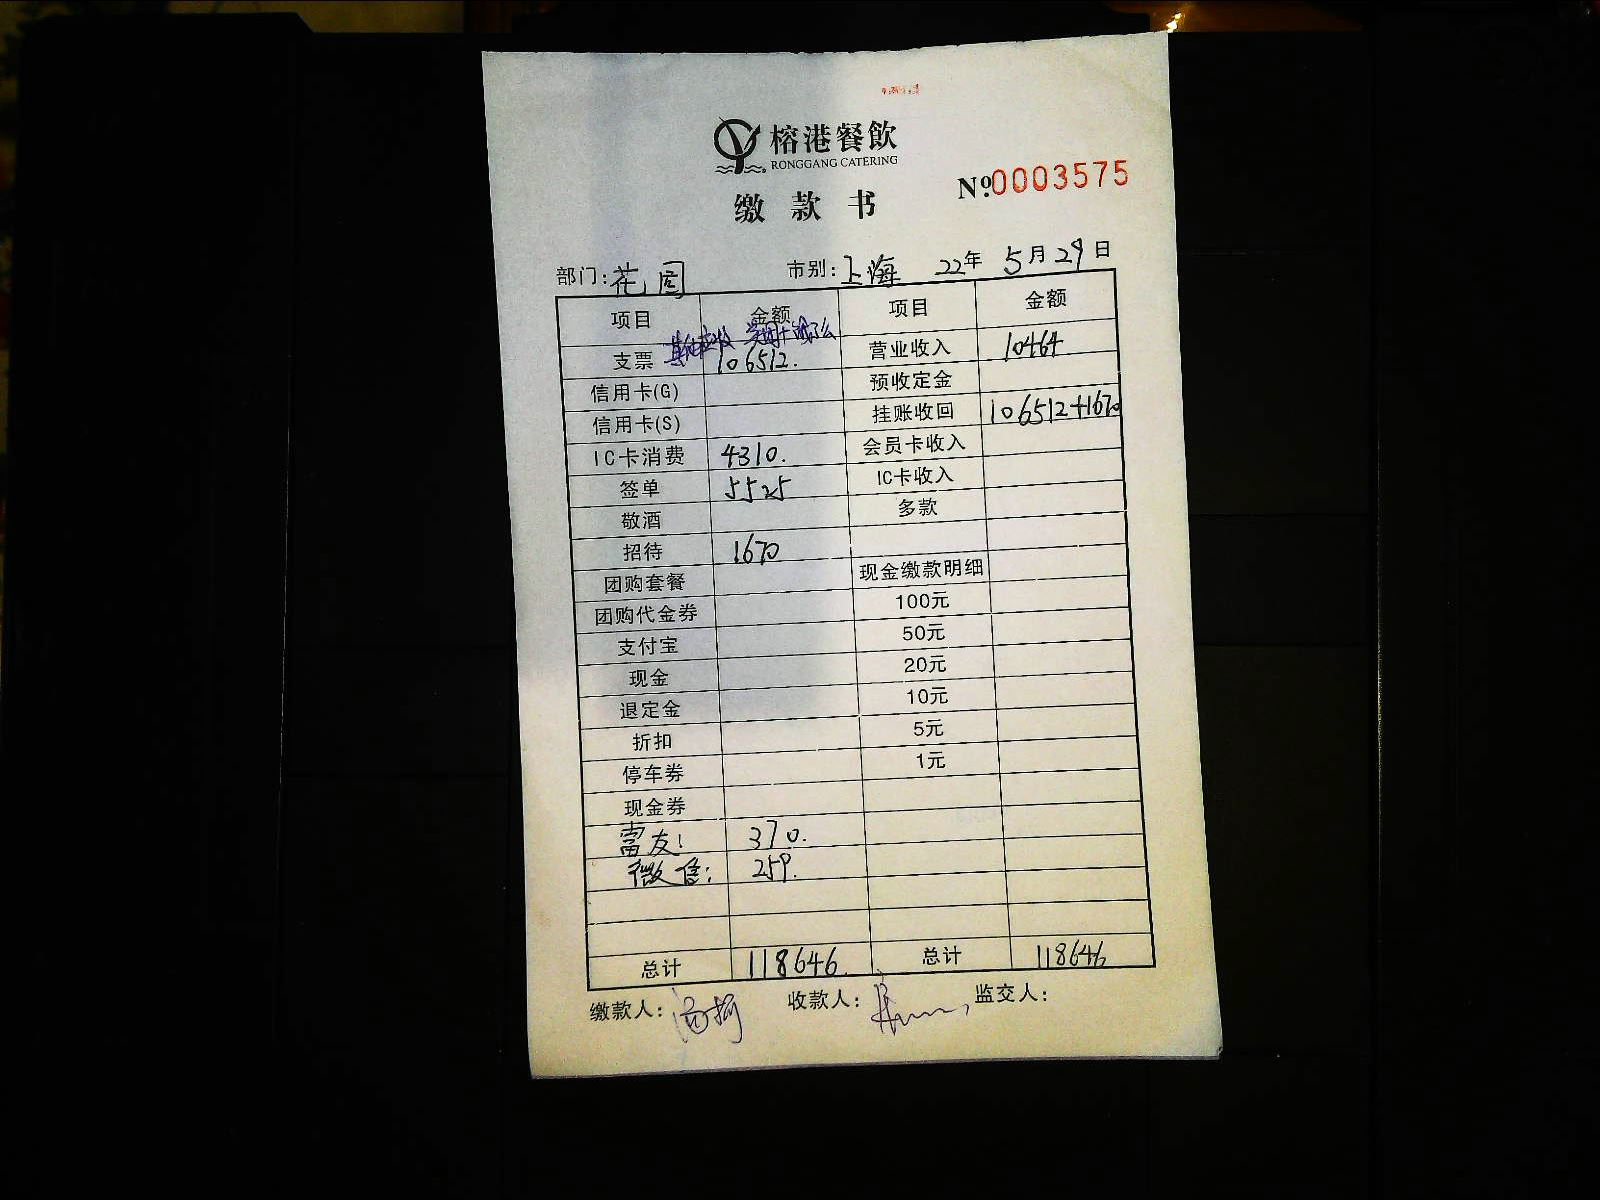 榕港餐飲
RONGGANG CATERING
缴款书
№0003575
部门:花园 市别:上海 22年 5月29日
项目 金额 项目 金额
支票 106512. 营业收入 10464
信用卡(G) 预收定金
信用卡(S) 挂账收回 106512+1670
IC卡消费 4310. 会员卡收入
签单 5525 IC卡收入
敬酒 多款
招待 1670
团购套餐 现金缴款明细
团购代金券 100元
支付宝 50元
现金 20元
退定金 10元
折扣 5元
停车券 1元
现金券
雷友: 370.
微信: 259.
总计 118646. 总计 118646
缴款人: 收款人: 监交人: